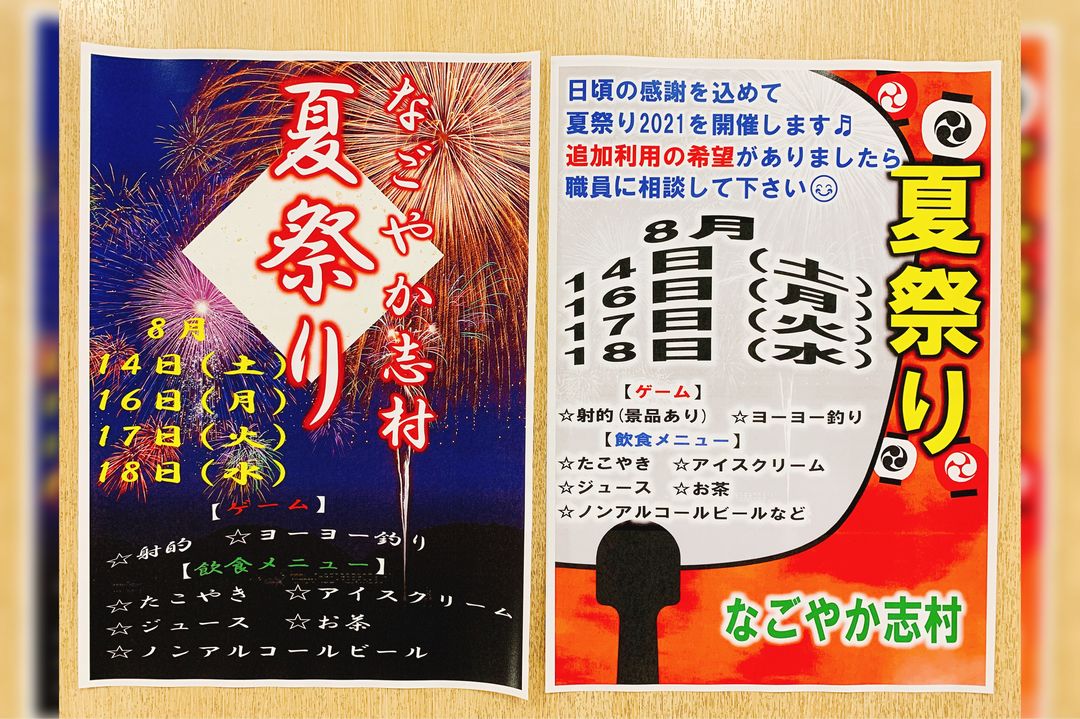 なごやか志村
夏祭り
8月
14日(土)
16日(月)
17日(火)
18日(水)
【ゲーム】
☆射的 ☆ヨーヨー釣り
【飲食メニュー】
☆たこやき ☆アイスクリーム
☆ジュース ☆お茶
☆ノンアルコールビール
日頃の感謝を込めて
夏祭り2021を開催します♫
追加利用の希望がありましたら
職員に相談して下さい😊
夏祭り
8月
14日(土)
16日(月)
17日(火)
18日(水)
【ゲーム】
☆射的(景品あり) ☆ヨーヨー釣り
【飲食メニュー】
☆たこやき ☆アイスクリーム
☆ジュース ☆お茶
☆ノンアルコールビールなど
なごやか志村